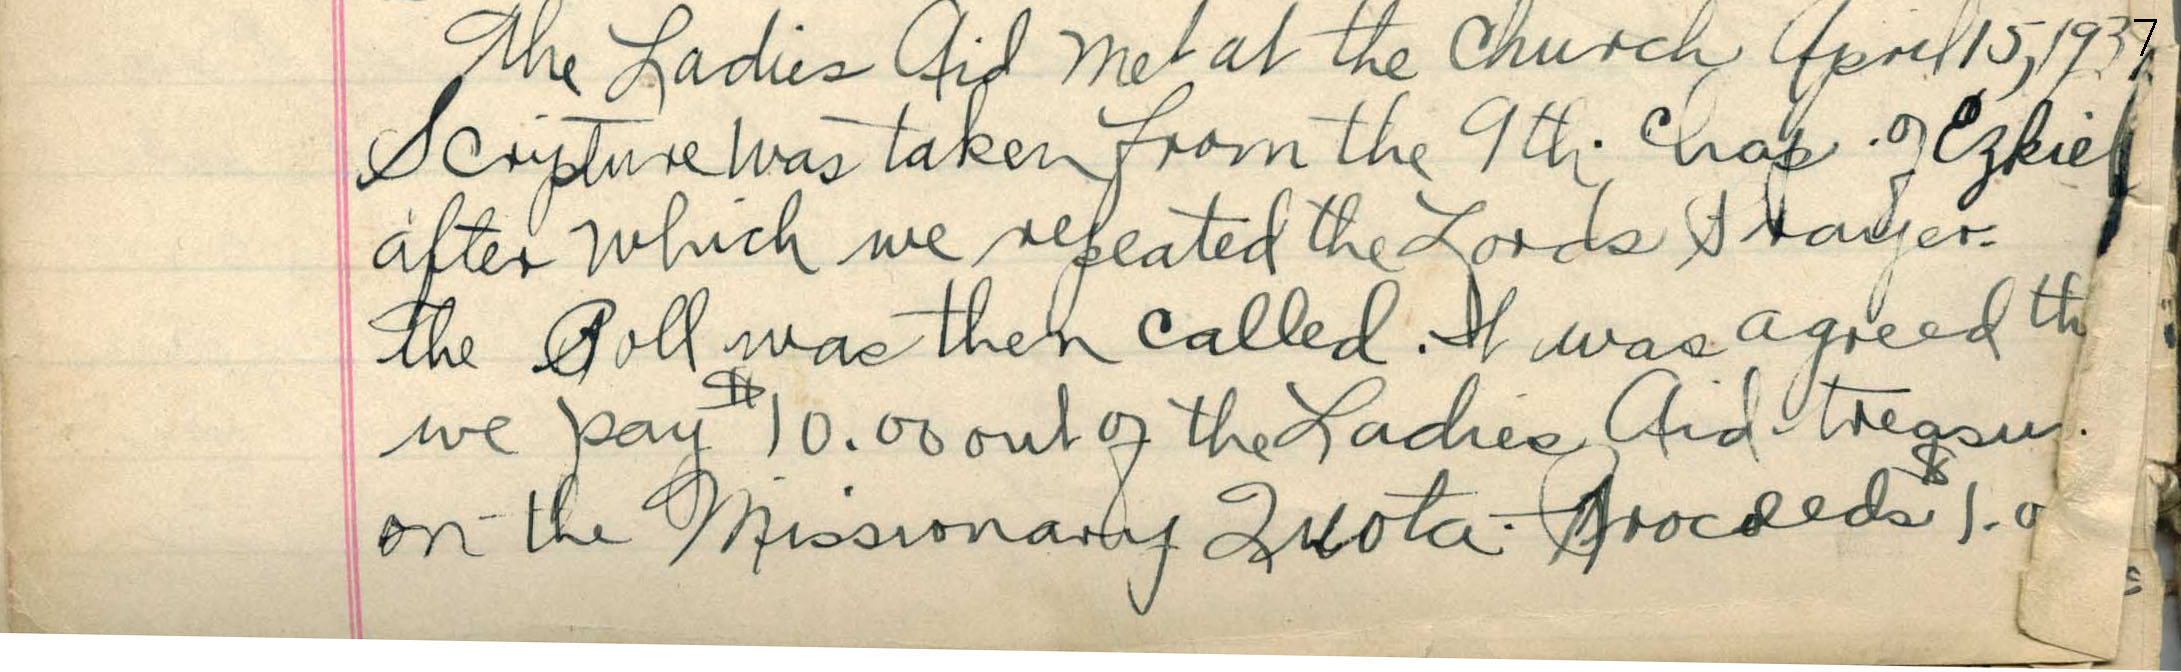 The Ladies Aid met at the Church April 15, 1937
Scripture was taken from the 9th. Chap. of Ezkiel
after which we repeated the Lords Prayer.
The Roll was then called. It was agreed th
we pay $10.00 out of the Ladies Aid treasu
on the Missionary Quota. Proceeds $1.0